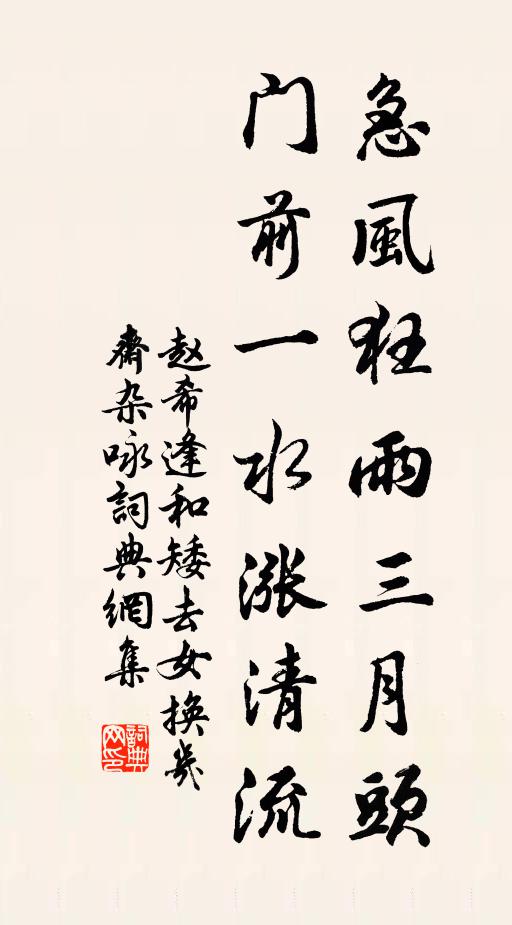 急風狂雨三月頭
门前一水漲清流
赵希逢和矮去女换幾
齋杂咏詞典網集
詞典网印